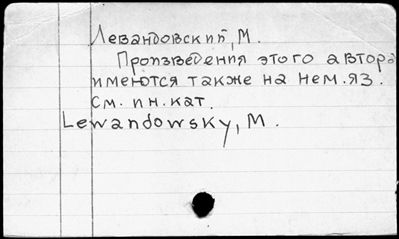 Левандовский, М.
Произведения этого автора
имеются также на нем. яз.
См. ин. кат.
Lewandowsky, M.